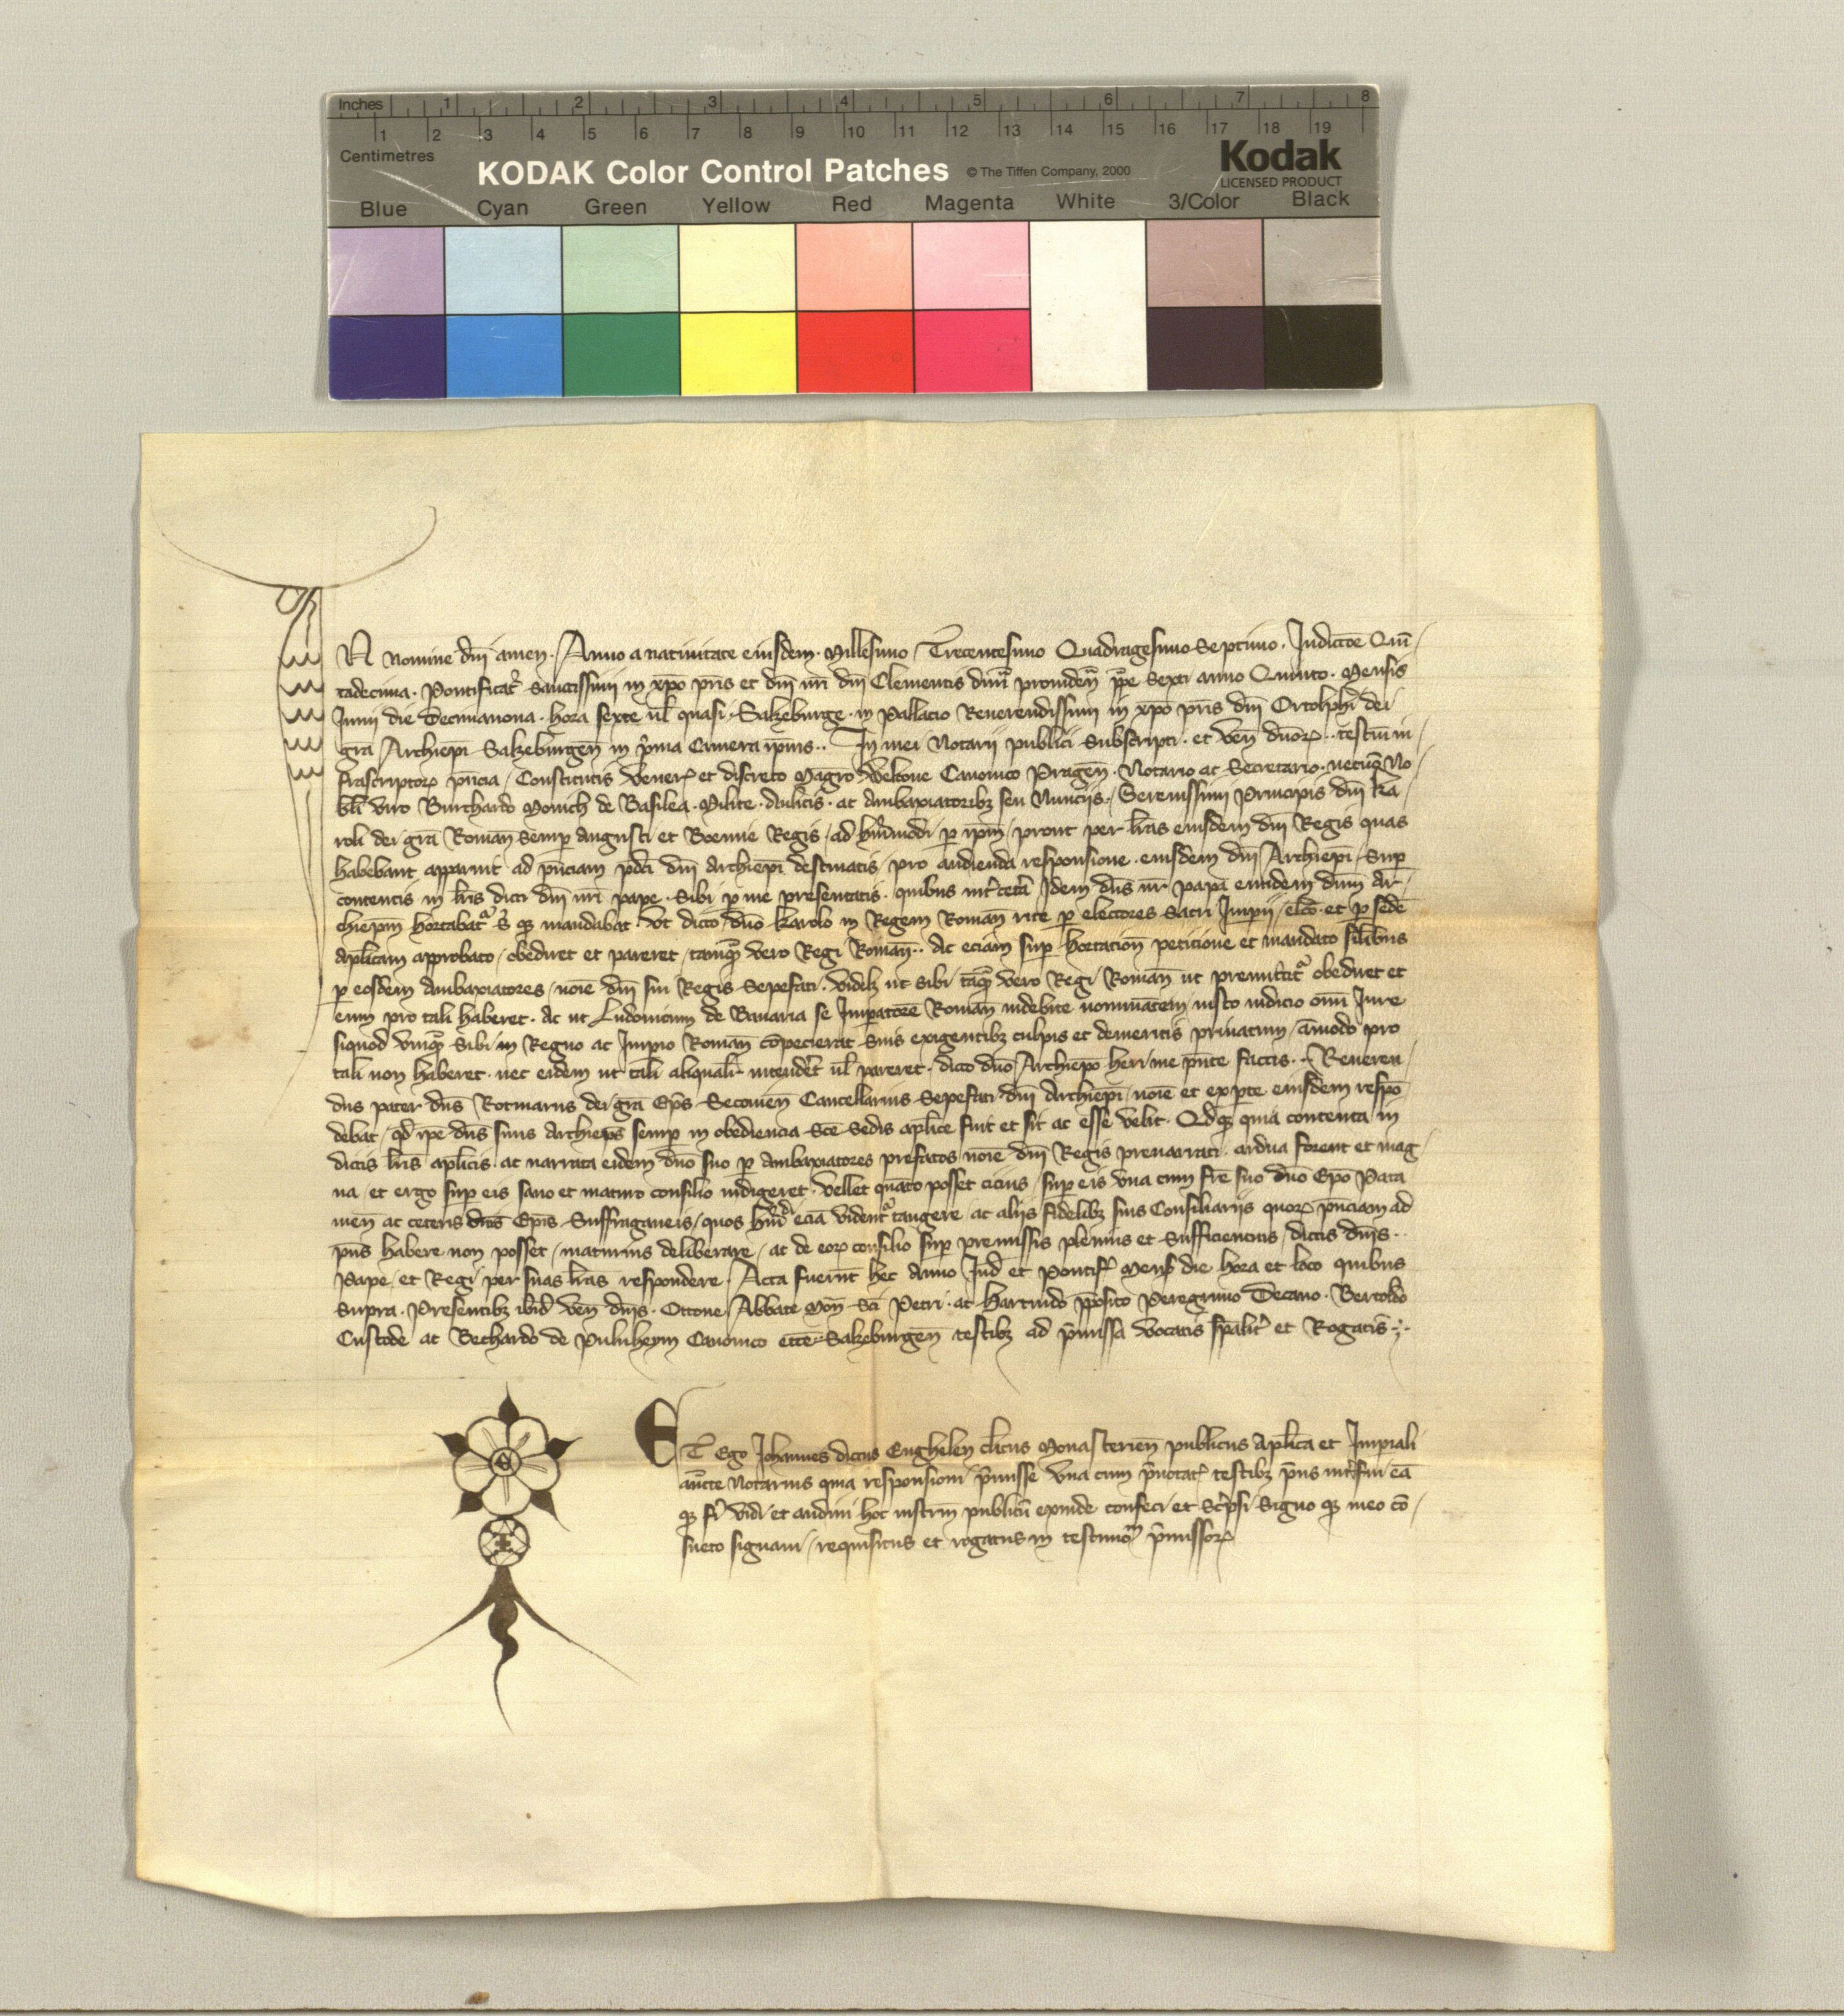 Inches 1 2 3 4 5 6 7 8
1 2 3 4 5 6 7 8 9 10 11 12 13 14 15 16 17 18 19
Centimetres
KODAK Color Control Patches © The Tiffen Company, 2000 Kodak
LICENSED PRODUCT
Blue Cyan Green Yellow Red Magenta White 3/Color Black
IN Nomine dnī amen. Anno a natiuitate eiusdem. Millesimo Trecentesimo Quadragesimo Septimo. Indictōe Quī/
tadecima. Pontificat᾽ Sanctissimi in xp̄o pr̄is et dn̄i nr̄i dn̄i Clementis diuīa prouidēn pp̄e Sexti anno Quinto. Mensis
Junii die Decimanona. hora sexte ul̄ quasi. Salzeburge. in Pallacio Reuerendissimi in xp̄o pr̄is dn̄i Ortolphi dei
gr̄a Archiepī Salzeburgen̄ in p̄ma Camera ip̄ius.. In mei Notarij publici Subscripti. et ven̄ duōꝝ.. testiū in/
frascriptoꝝ pn̄cia, Constitutis veneꝝ et discreto Magr̄o Welkone Canonico Pragen̄. Notario ac Secretario. necnō No/
bil̄i viro Burchardo Monich de Basilea. Milite. Aulicis. ac Ambaxiatoribꝫ seu Nuncijs. Serenissimi Principis dn̄i Ka/
roli dei gr̄a Roman̄ Semꝑ Augusti et Boemie Regis, ad hm̄odi ꝑ ip̄m, prout per l̄ras eiusdem dn̄i Regis quas
habebant apparuit ad pn̄ciam p̄dc̄i dn̄i Archiepī destinatis, pro audienda responsione. eiusdem dn̄i Archiepī. Suꝑ
contentis in l̄ris dicti dn̄i nr̄i pape. Sibi ꝑ me presentatis. quibus int᾽ ceta Idem dn̄s nr̄ papa eundem dn̄m Ar/
chiep̄m hortabat᾽ & qꝫ mandabat. vt dicto dn̄o Karolo in Regem Roman̄ rite ꝑ electores Sacri Impij, elc̄o. et ꝑ sedē
Aplīcam approbato, obediret et pareret, tamqꝫ vero Regi Roman̄.. Ac eciam suꝑ hortacion̄ peticione et mandato silībus
ꝑ eosdem Ambaxiatores, noīe dn̄i sui Regis Sepefati. videlꝫ ut sibi tāqꝫ vero Regi Roman̄ ut premittit᾽ obediret et
eum pro tali haberet. Ac ut Ludouicum de Bauaria se Impatorē Roman̄ indebite nominātem iusto iudicio om̄i Iure
siquod vmqꝫ Sibi in Regno ac Impio Roman̄ cōpecierat Suis exigentibꝫ culpis et demeritis priuatum, āmodo pro
tali non haberet. nec eidem ut tali aliquali intendet᾽ ul̄ pareret. dicto dn̄o Archiepō heri me pn̄te factis.. Reueren/
dus pater dn̄s Rotmarus dei gr̄a Ep̄s Secouien̄ Cancellarius Sepefati dn̄i Archiepī, noīe et ex ꝑte eiusdem respō
debat, qd̄ ip̄e dn̄s suus Archiep̄s semꝑ in obediencia Sc̄e Sedis apl̄ice fuit et sit ac esse velit. Qd̄qꝫ quia contenta in
dictis l̄ris apl̄icis. ac narrata eidem dn̄o suo ꝑ Ambaxiatores prefatos noīe dn̄i Regis prenarrati. ardua forent et mag/
na, et ergo suꝑ eis sano et maturo consilio indigeret. vellet quāto posset cicius, suꝑ eis vna cum fr̄e suo dn̄o Epō Pata
uien̄ ac ceteris dn̄is Ep̄is Suffraganeis, quos hm̄ eciā vident᾽ tangere ac alijs fidelibꝫ suis Consiliarijs quoꝝ pn̄ciam ad
pn̄s habere non posset, maturius deliberare, ac de eoꝝ consilio suꝑ premissis plenius et Sufficiencius, dictis dn̄is..
Pape, et Regi, per suas l̄ras respondere. Acta fuerūt hec Anno Ind̄ et Pontif᾽ Mens̄ die hora et loco quibus
Supra. Presentibꝫ ibid̄ ven̄ dn̄is. Ottone Abbate Mon̄ Sc̄i Petri. ac Hartnido p̄posito Peregrino Decano. Bertoldo
Custode ac Bechardo de Puluheym Canonico ecc̄e Salzeburgen̄ testibꝫ ad p̄missa vocatis sp̄alit᾽ et Rogatis.
ET Ego Johannes dictus Enghelen cl̄icus Monasterien̄ publicus Apl̄ica et Impiali
auc̄te Notarius quia responsioni p̄misse vna cum p̄notat᾽ testibꝫ pn̄s int᾽fui eā
qꝫ fi᾽ vidi et audiui hoc instr̄m publicū exinde confeci et Sc᾽psi Signo qꝫ meo cō/
sueto signaui, requisitus et rogatus in testimoīu p̄missoꝝ